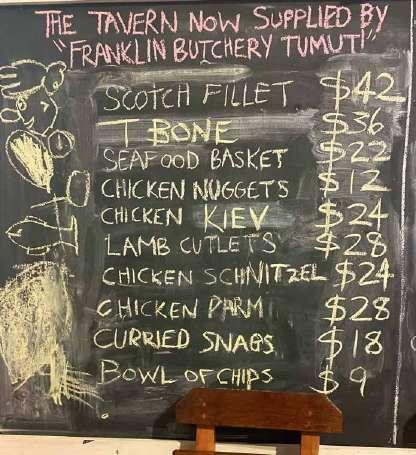 THE TAVERN NOW SUPPLIED BY
"FRANKLIN BUTCHERY TUMUT!"
SCOTCH FILLET $42
T BONE $36
SEAFOOD BASKET $22
CHICKEN NUGGETS $12
CHICKEN KIEV $24
LAMB CUTLETS $28
CHICKEN SCHNITZEL $24
CHICKEN PARM $28
CURRIED SNAGS $18
BOWL OF CHIPS $9